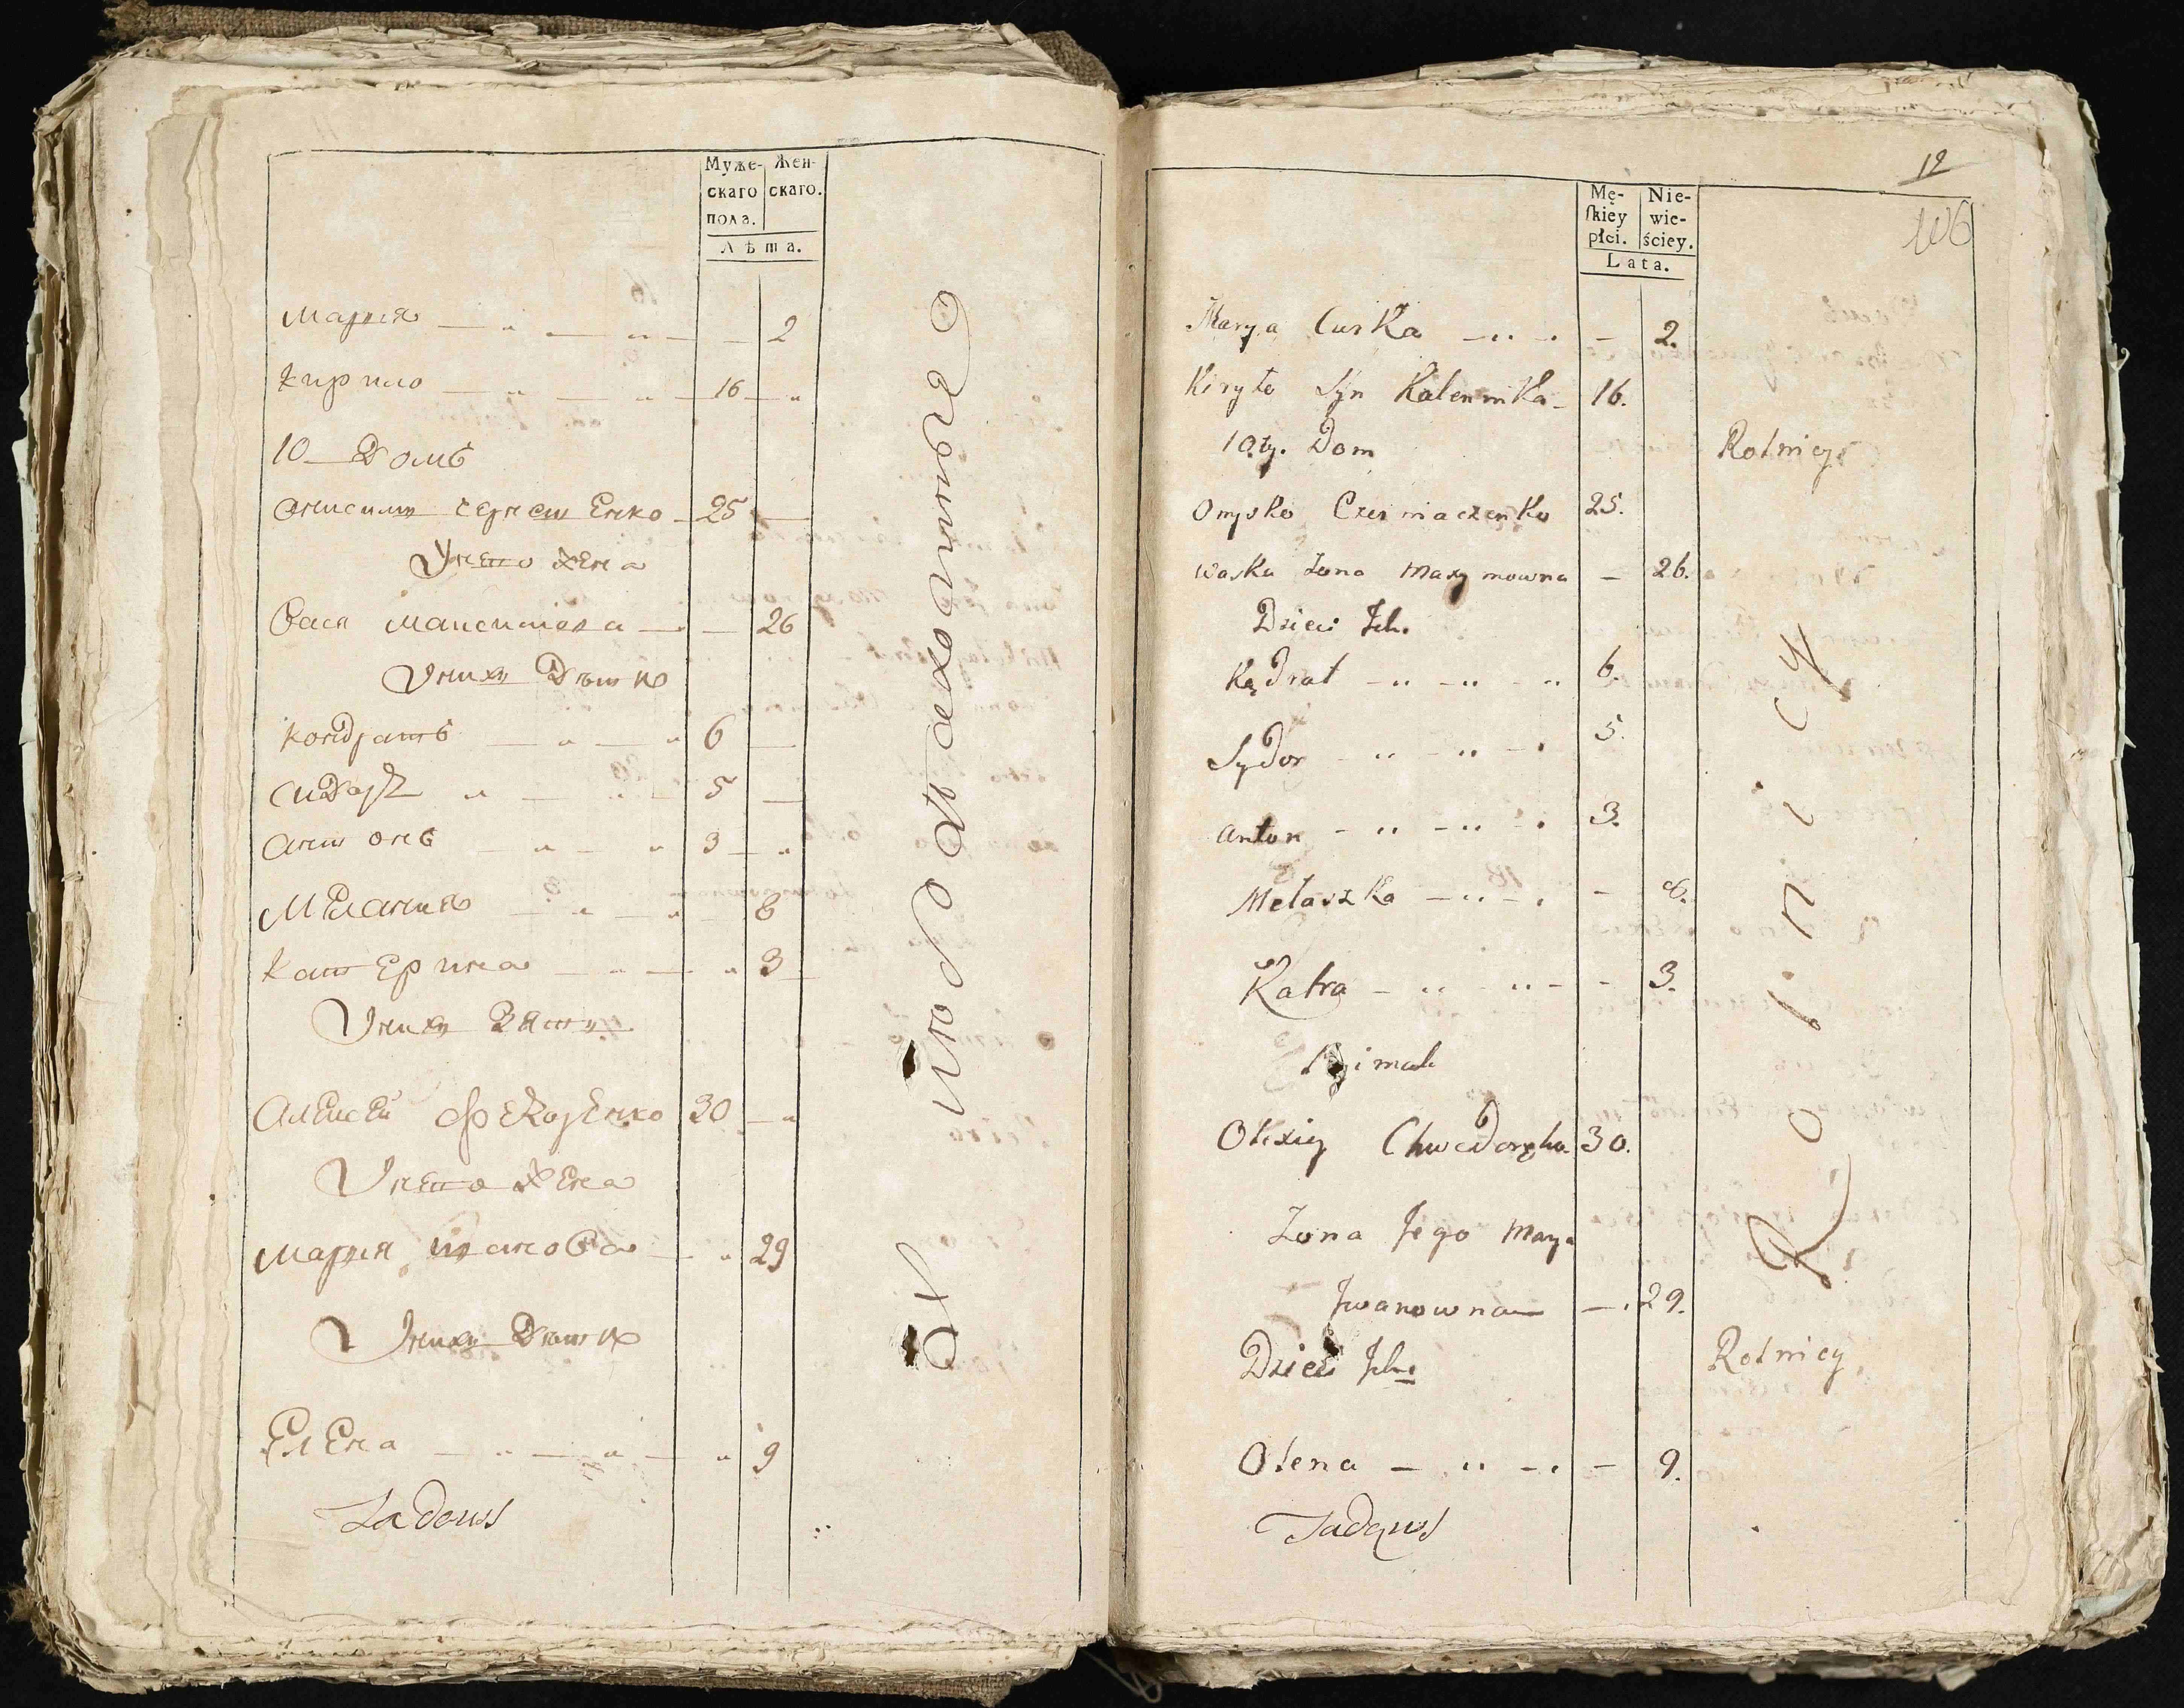 Муже-
скаго
пола.
Жен-
скаго.
Лѣта.
Мария 2
Кирило 16
10 Домъ
Онисимъ Чернешенко 25
Унего жена
Вася Максимова 26
Унихъ Дѣти
Кондратъ 6
Сидоръ 5
Антонъ 3
Мелания 8
Катерина 3
Унихъ Зять
Алексей Федоренко 30
Унего жена
Мария Иванова 29
Унихъ Дѣти
Елена 9
Ladows
12
106
Mę-
ſkiey
płci.
Nie-
wie-
ściey.
Lata.
Marya Curka 2.
Kiryło Syn Kalennika 16.
10.ty. Dom Rolnicy
Onysko Czerniaczenko 25.
Waska Żona Maxymowna 26.
Dzieci Ich.
Kędrat 6.
Sydor 5.
Anton 3.
Melaszka 8.
Katra 3.
Olexiy Chwedoręko 30.
Żona Jego Marya
Jwanowna 29.
Dzieci Ich Rolnicy
Olena 9.
Rolnicy